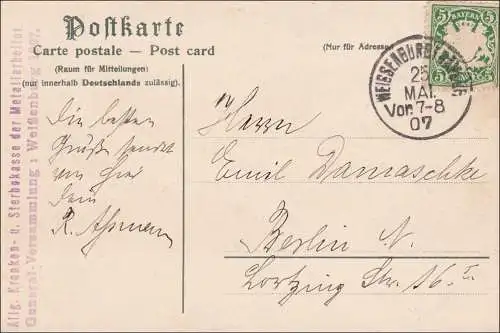 Postkarte
Carte postale — Post card
(Raum für Mitteilungen)
(nur innerhalb Deutschlands zulässig).
(Nur für Adresse)
5 BAYERN 5
WEISSENBURG I. BAYERN
25
MAI.
Vor. 7-8
07
Allg. Kranken- u. Sterbekasse der Metallarbeiter
General-Versammlung: Weißenburg 1907.
Die besten
Grüße sendet
von hier
Dein
R. Assmann
Herrn
Emil Damaschke
Berlin N.
Lortzing Str. 16 I